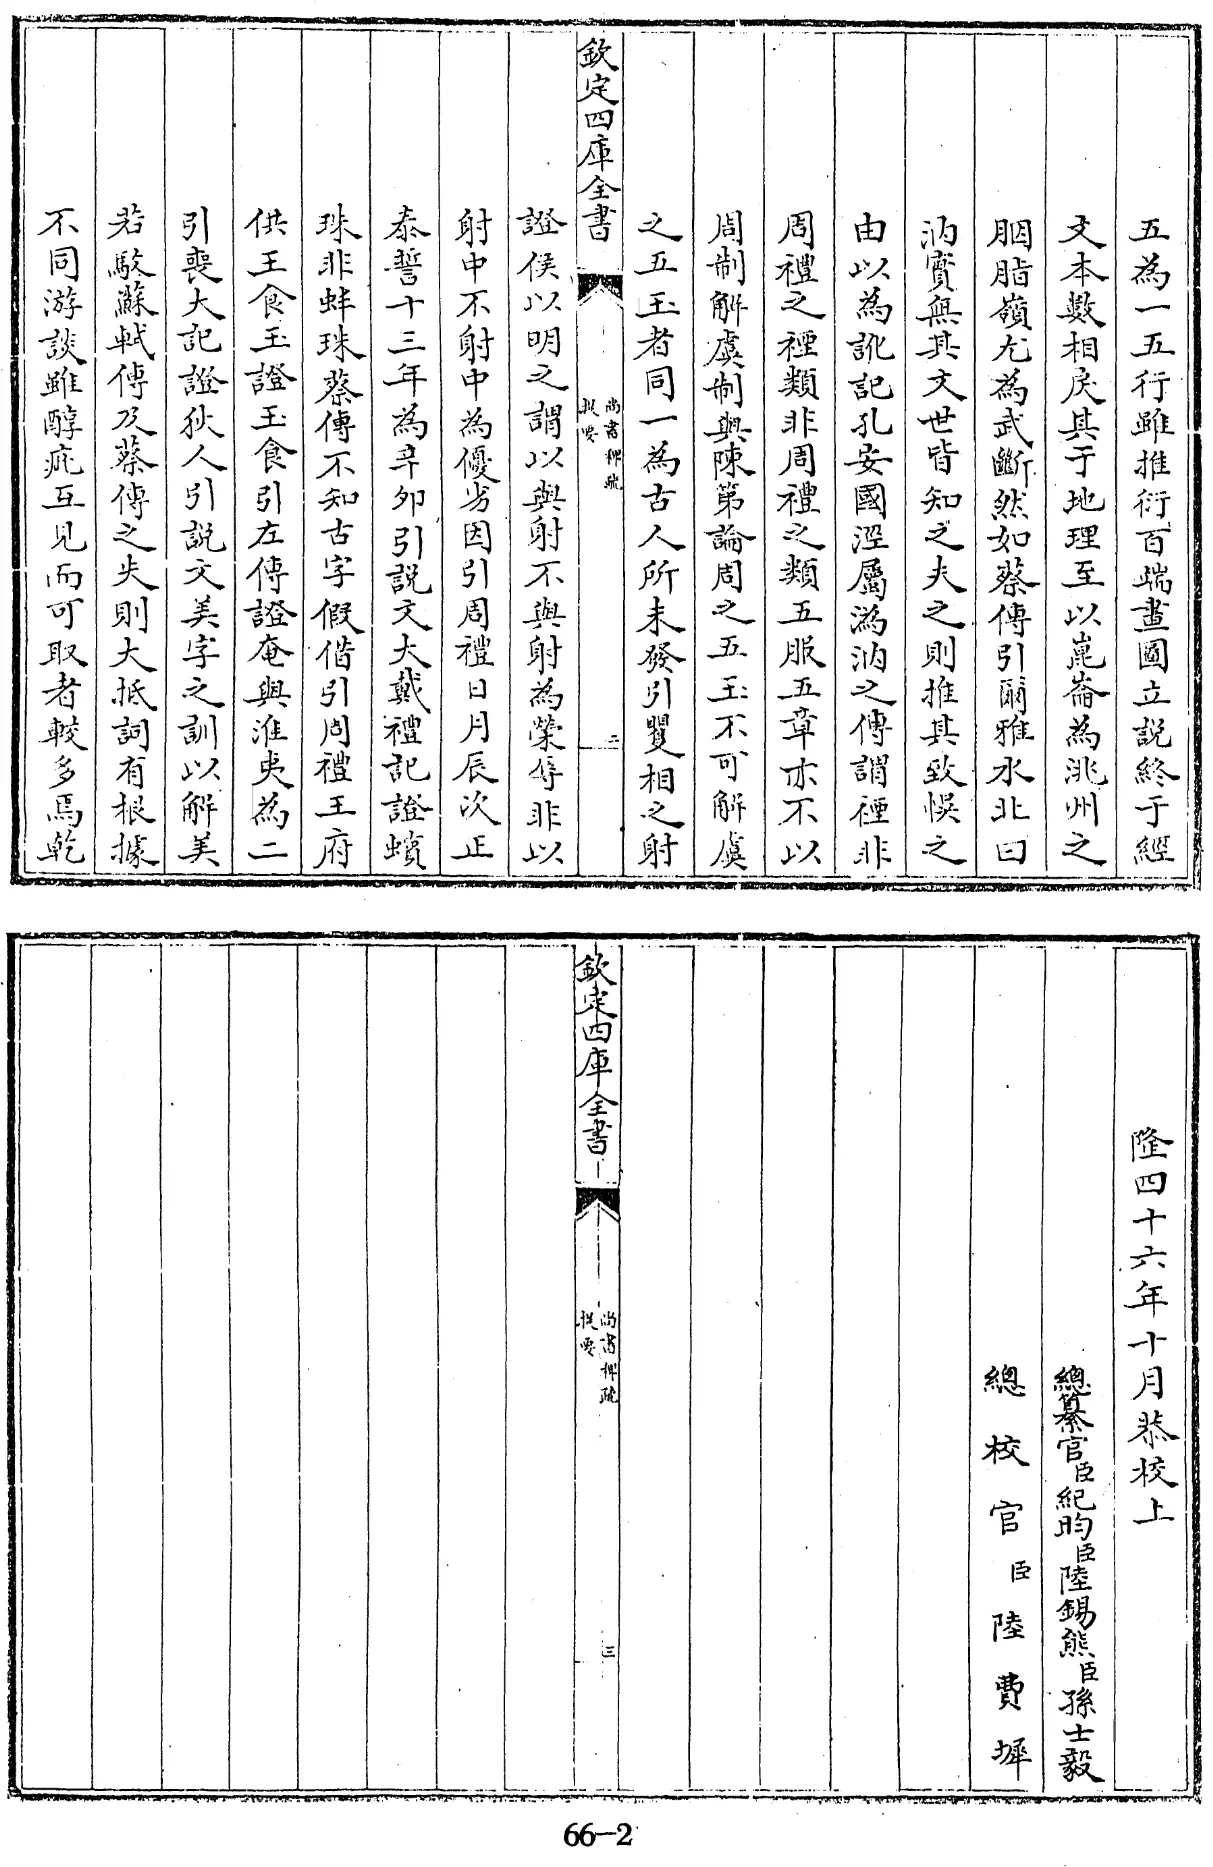 五為一五行雖推衍百端畫圖立説終于經
文本數相戾其于地理至以崑崙為洮州之
胭脂嶺尤為武斷然如蔡傳引爾雅水北曰
汭實無其文世皆知之夫之則推其致悞之
由以為訛記孔安國涇屬渭汭之傳謂禋非
周禮之禋類非周禮之類五服五章亦不以
周制解虞制與陳第論周之五玉不可解虞
之五玉者同一為古人所未發引矍相之射
欽定四庫全書
尚書稗疏
提要
二
證侯以明之謂以與射不與射為榮辱非以
射中不射中為優劣因引周禮日月辰次正
泰誓十三年為辛卯引説文大戴禮記證蠙
珠非蚌珠蔡傳不知古字假借引周禮王府
供王食玉證玉食引左傳證奄與淮夷為二
引喪大記證狄人引説文羙字之訓以解羙
若駮蘇軾傳及蔡傳之失則大抵詞有根據
不同游談雖醇疵互見而可取者較多焉乾
隆四十六年十月恭校上
總纂官臣紀昀臣陸錫熊臣孫士毅
總校官臣陸費墀
欽定四庫全書
尚書稗疏
提要
三
66-2